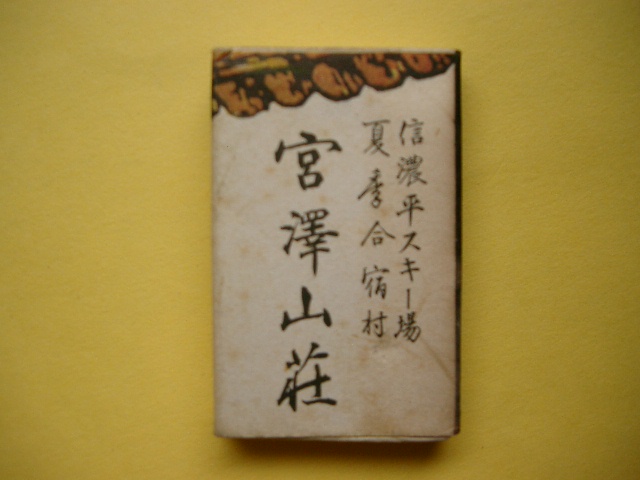 信濃平スキー場
夏季合宿村
宮澤山荘